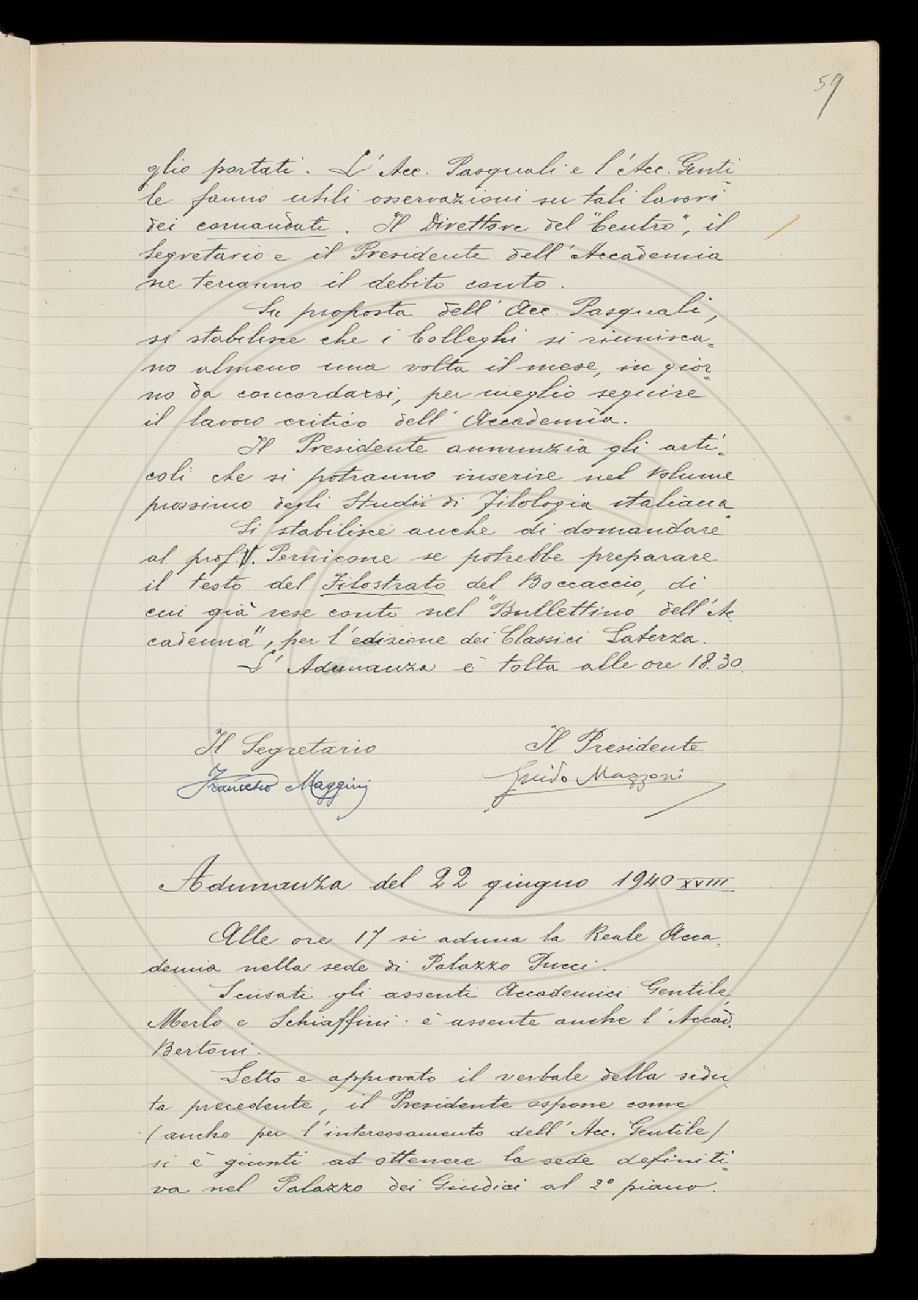 59
glio portati. L'Acc. Pasquali e l'Acc. Genti
le fanno utili osservazioni su tali lavori
dei comandati. Il Direttore del "Centro", il
Segretario e il Presidente dell'Accademia
ne terranno il debito conto.
Su proposta dell'Acc. Pasquali,
si stabilisce che i Colleghi si riunisca-
no almeno una volta il mese, in gior-
no da concordarsi, per meglio seguire
il lavoro critico dell'Accademia.
Il Presidente annunzia gli arti-
coli che si potranno inserire nel Volume
prossimo degli Studii di Filologia italiana.
Si stabilisce anche di domandare
al prof. V. Pernicone se potrebbe preparare
il testo del Filostrato del Boccaccio, di
cui già rese conto nel "Bullettino dell'Ac-
cademia", per l'edizione dei Classici Laterza.
L'Adunanza è tolta alle ore 18.30.
Il Segretario
Il Presidente
Francesco Maggini
Guido Mazzoni
Adunanza del 22 giugno 1940 XVIII
Alle ore 17 si aduna la Reale Acca-
demia nella sede di Palazzo Pucci.
Scusati gli assenti Accademici Gentile,
Merlo e Schiaffini: è assente anche l'Accad.
Bertoni.
Letto e approvato il verbale della sedu-
ta precedente, il Presidente espone come
(anche per l'interessamento dell'Acc. Gentile)
si è giunti ad ottenere la sede definiti-
va nel Palazzo dei Giudici al 2° piano.